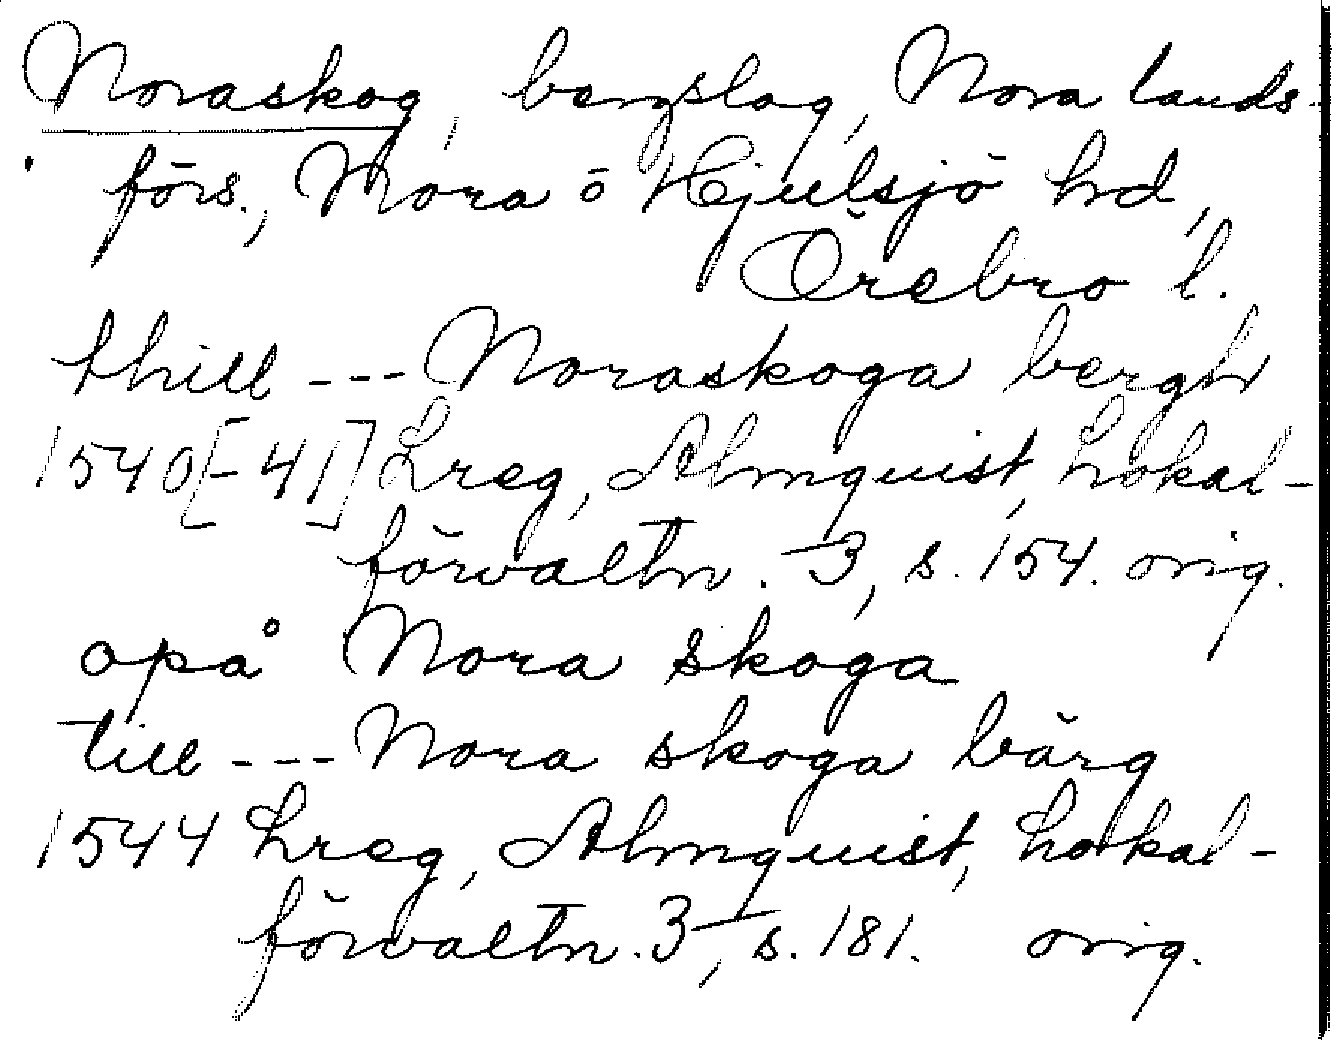 Noraskog, bergslag, Nora lands-
förs., Nora o Hjulsjö hd,
Örebro l.
thill --- Noraskoga bergh
1540[-41] Lreg, Almquist, Lokal-
förvaltn. 3, s. 154. orig.
opå Nora skoga
till --- Nora skoga bärg
1544 Lreg, Almquist, Lokal-
förvaltn. 3, s. 181. orig.